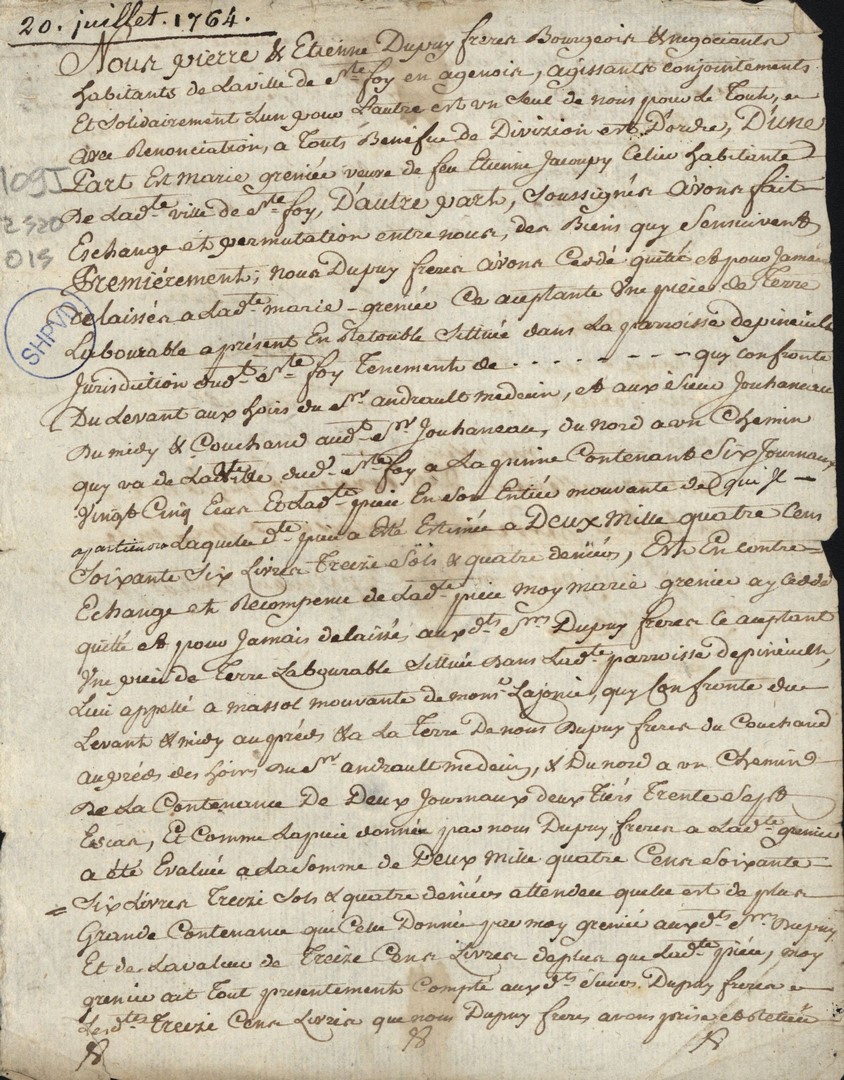 20. juillet. 1764.
Nous pierre & Etienne Dupuy freres Bourgeois & negociants
habitants de Laville de Ste foy en agenois, agissants conjointements
Et Solidairement Lun pour Lautre est un Seul de nous pour Le Tout, e
avec Renonciation, a Touts Benefice de Divizion est D'ordre, D'une
Part Est Marie greniée veuve de feu Etienne Jacoupy habitante
109J
De Ladte ville de Ste foy, D'autre part, Soussignés avons fait
2S20
Eschange et permutation entre nous, des Biens quy Sensuivent
015
Premiérement, nous Dupuy freres avons Cedé quité et pour Jamais
delaissés a Ladte marie greniée Ce aceptante Une piéce de Terre
SHPVD
Labourable aprésent En Retouble Sittuée dans La parroisse depineuilh
Jurisdiction dudt Ste foy Tenement de - - - - - - - - - quy confronte
Du Levant aux hoirs du Sr andrault medecin, et aux Sieur Jouhaneau
Du midy & Couchand audt Sr Jouhaneau, du nord a un Chemin
quy va de Laville dudt Ste foy a Contenant Six Journaux
Vingt Cinq Escas Et Ladte piéce En Son Entiée mouvante de qui Il
apartiendra Laquelle dte piéce a Eté Estimée a Deux Mille quatre Cens
Soixante Six Livres Treize Sols & quatre deniées, Est En contre=
Echange et Recompense de Ladte piéce moy marie greniée ay Cedde
quité et pour Jamais delaissés auxdts Srs Dupuy freres Ce aceptant
Une piéce de Terre Labourable Sittuée dans Ladte parroisse depineuilh,
Lieu appellé a massol mouvante de monsr Lajonie, quy Confronte du
Levant & midy aupréds & a La Terre De nous Dupuy freres du Couchand
aupréds des hoirs Du Sr andrault medecin, & Du nord a un Chemin
De La Contenance De Deux Journaux deux Tiérs Trente Sept
Escas, Et Comme Lapiéce donnée par nous Dupuy freres a Ladte greniée
a été Evaluée a La Somme de Deux Mille quatre Cens Soixante
Six Livres Treize Sols & quatre deniées attendeu quelle est de plus
Grande Contenance que Celle Donnée par moy greniée auxdts Srs Dupuy
Et de Lavaleur de Treize Cens Livres deplus que Ladte piéce, moy
greniée ait Tout presentement Compté auxdts Sieurs Dupuy freres
Lesdtes Treize Cens Livres que nous Dupuy freres avons prise et retirée